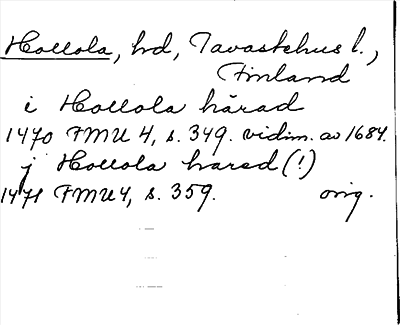 Hollola, hd, Tavastehus l.,
Finland
i Hollola härad
1470 FMU 4, s. 349. vidim. av 1684.
j Hollola hared (!)
1471 FMU 4, s. 359. orig.